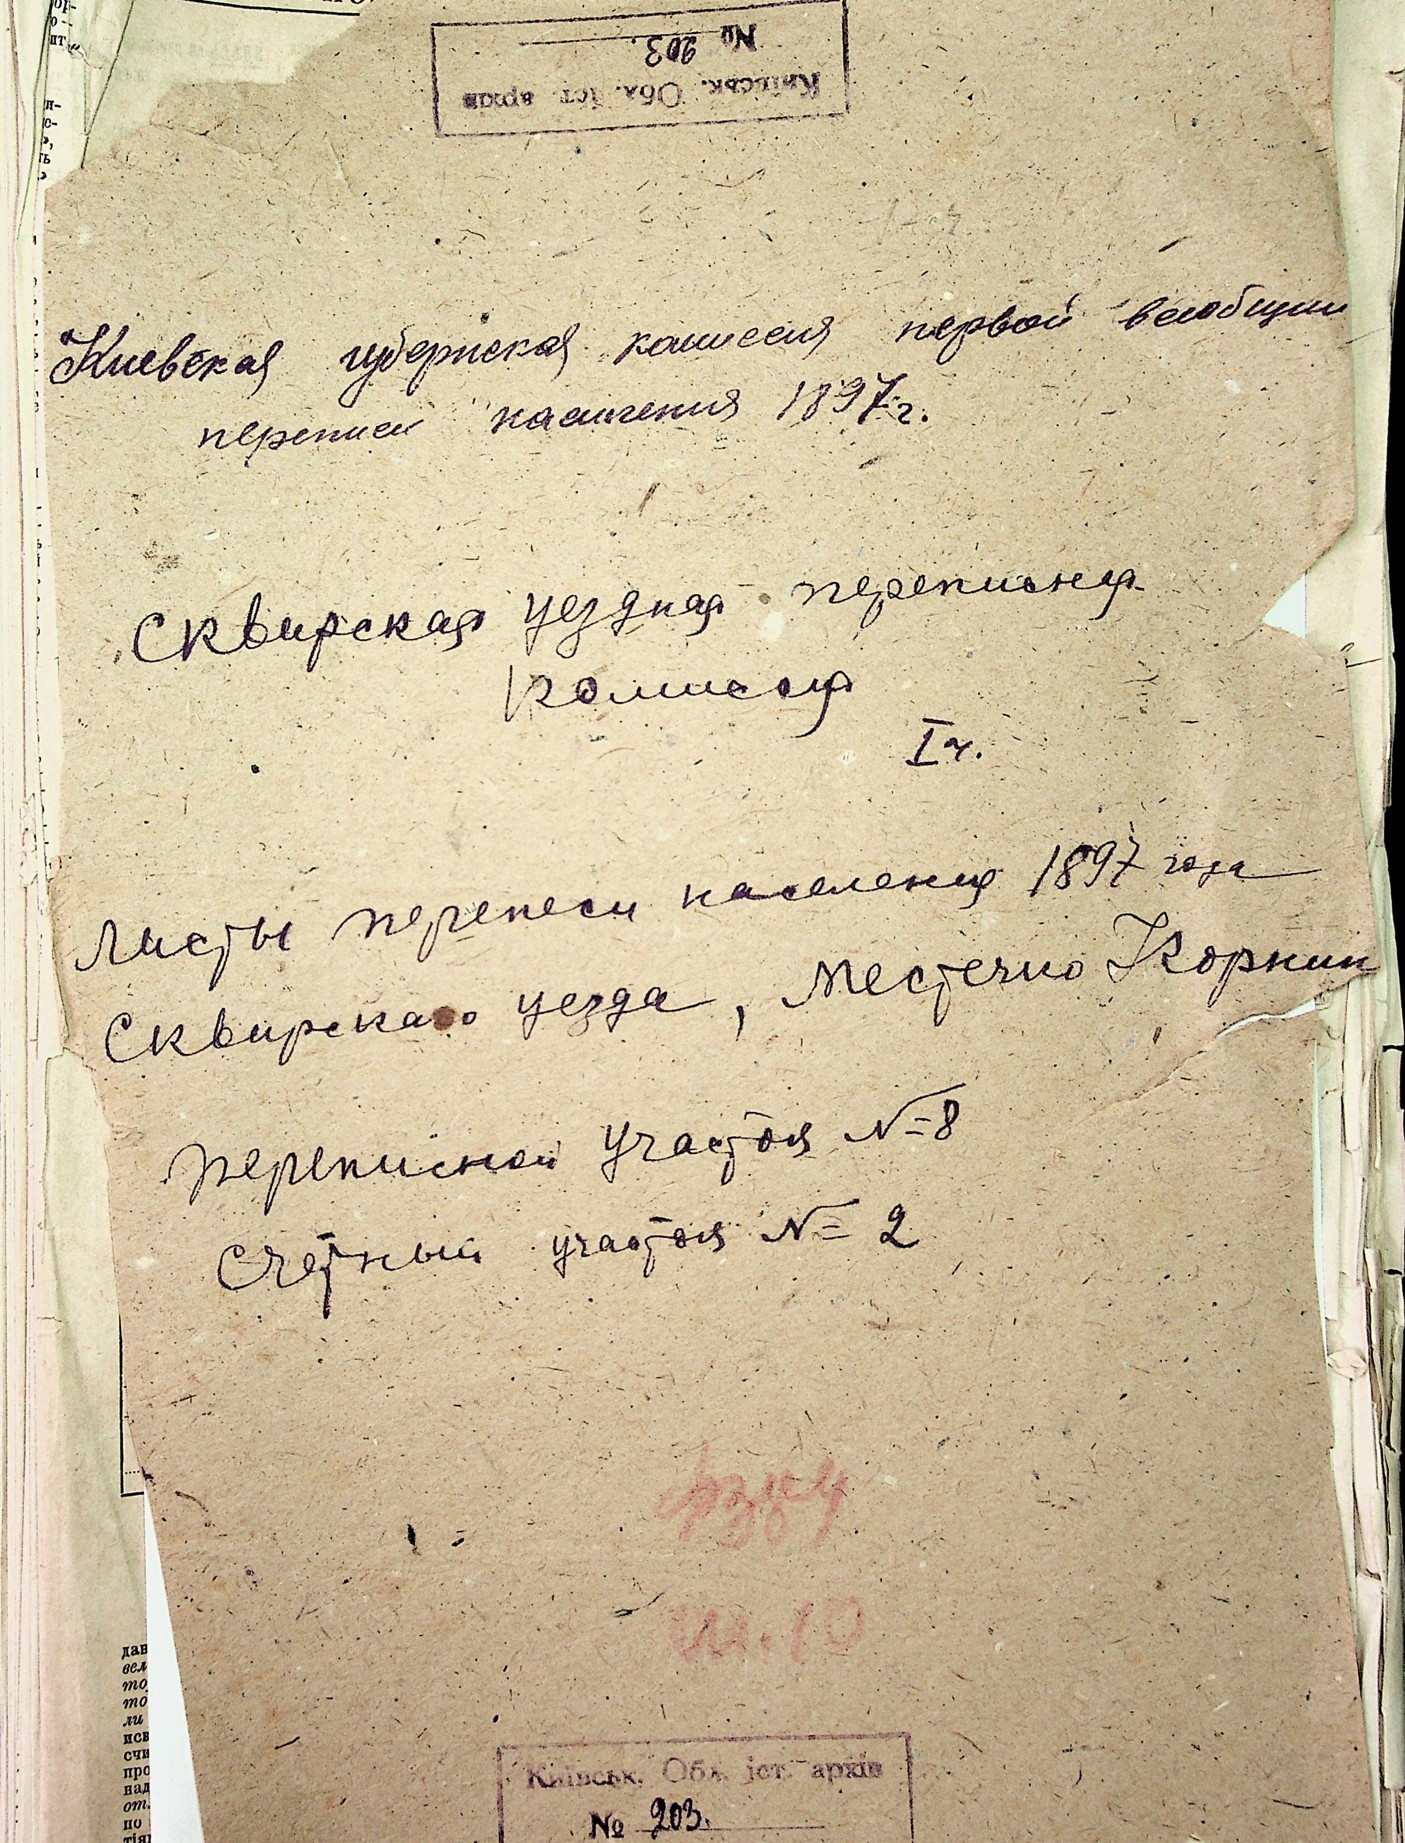 № 203.
Київськ. Обл. іст. архів
Киевская губернская комиссия первой всеобщей
переписи населения 1897 г.
Сквирская уездная переписная
комиссия
I ч.
Листы переписи населения 1897 года
Сквирского уезда, местечко Корнин
Переписной участок № 8
Счетный участок № 2
Київськ. Обл. іст. архів
№ 203.
дан
вел
то
то
ли
исв
счи
про
над
от
по
тія